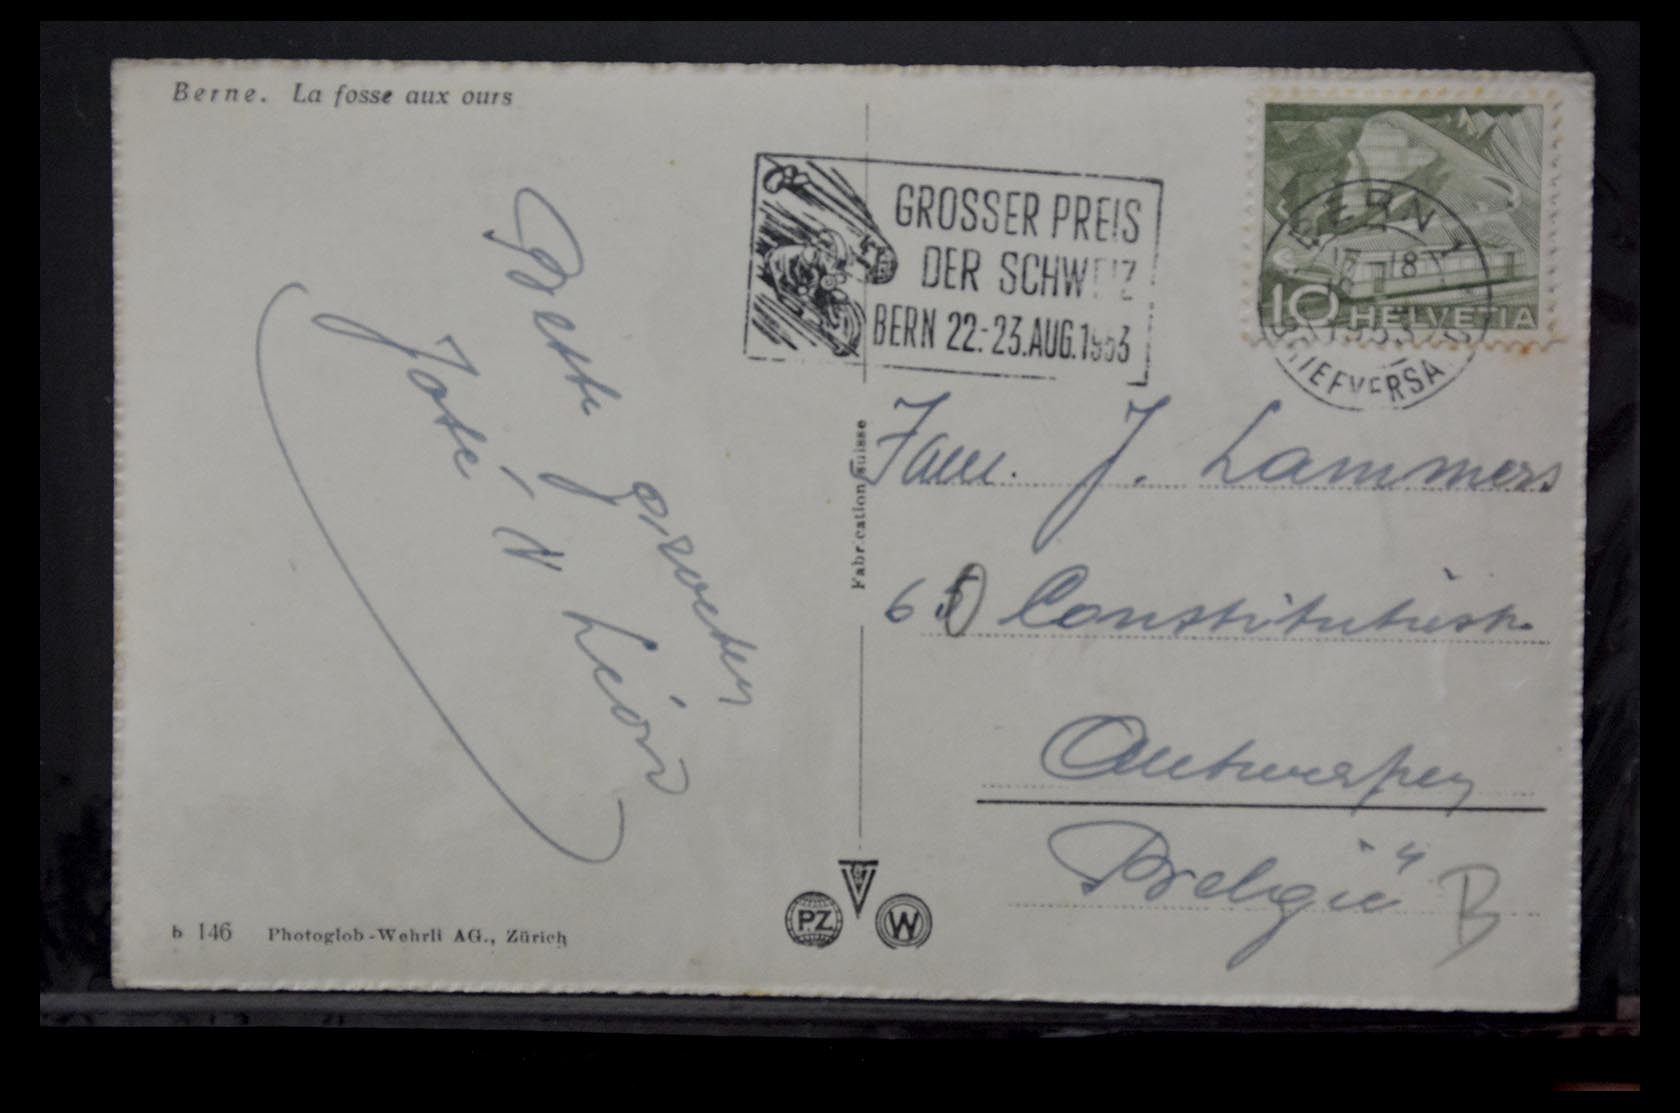 Berne. La fosse aux ours
Beste groeten
José N Léon
b 146 Photoglob-Wehrli AG., Zürich
Fabrication suisse
P.Z.
V
W
GROSSER PREIS
DER SCHWEIZ
BERN 22.-23.AUG.1953
BERN 1
BRIEFVERSA
10 HELVETIA
Fam. J. Lammers
65 Constitutiestr.
Antwerpen
België B